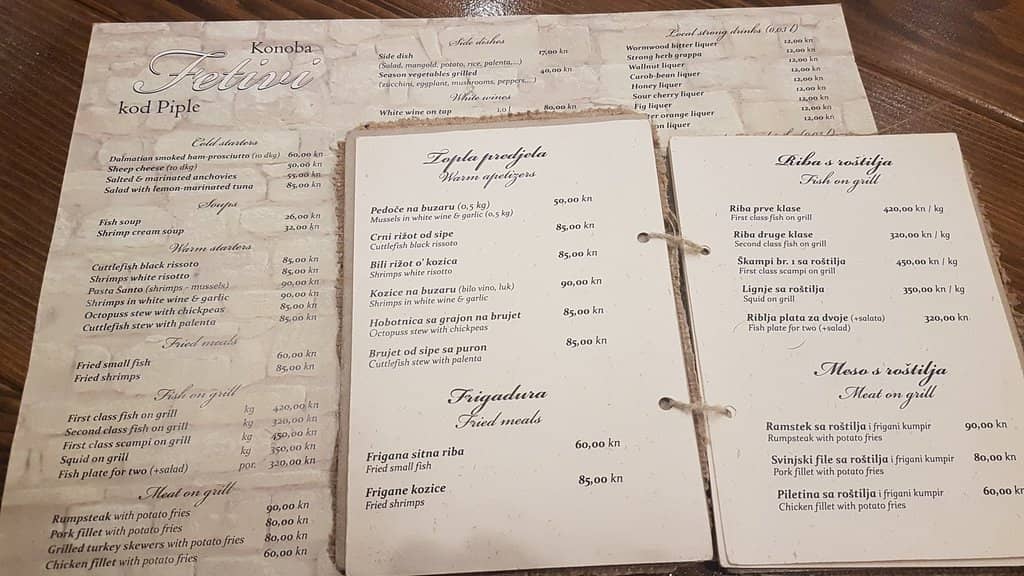 Konoba
Fetivi
kod Piple
Cold starters
Dalmatian smoked ham-prosciutto (10 dkg) 60,00 kn
Sheep cheese (10 dkg) 50,00 kn
Salted & marinated anchovies 55,00 kn
Salad with lemon-marinated tuna 85,00 kn
Soups
Fish soup 26,00 kn
Shrimp cream soup 32,00 kn
Warm starters
Cuttlefish black rissoto 85,00 kn
Shrimps white risotto 85,00 kn
Pasta Santo (shrimps - mussels) 90,00 kn
Shrimps in white wine & garlic 90,00 kn
Octopuss stew with chickpeas 85,00 kn
Cuttlefish stew with palenta 85,00 kn
Fried meals
Fried small fish 60,00 kn
Fried shrimps 85,00 kn
Fish on grill
First class fish on grill kg 420,00 kn
Second class fish on grill kg 320,00 kn
First class scampi on grill kg 450,00 kn
Squid on grill kg 350,00 kn
Fish plate for two (+salad) por. 320,00 kn
Meat on grill
Rumpsteak with potato fries 90,00 kn
Pork fillet with potato fries 80,00 kn
Grilled turkey skewers with potato fries 80,00 kn
Chicken fillet with potato fries 60,00 kn
Side dishes
Side dish 17,00 kn
(Salad, mangold, potato, rice, palenta,...)
Season vegetables grilled 40,00 kn
(zucchini, eggplant, mushrooms, peppers,...)
White wines
White wine on tap 1,0 l 80,00 kn
Local strong drinks (0,03 l)
Wormwood bitter liquer 12,00 kn
Strong herb grappa 12,00 kn
Wallnut liquer 12,00 kn
Carob-bean liquer 12,00 kn
Honey liquer 12,00 kn
Sour cherry liquer 12,00 kn
Fig liquer 12,00 kn
orange liquer 12,00 kn
liquer 12,00 kn
Topla predjela
Warm apetizers
Pedoče na buzaru (0,5 kg) 50,00 kn
Mussels in white wine & garlic (0,5 kg)
Crni rižot od sipe 85,00 kn
Cuttlefish black rissoto
Bili rižot o' kozica 85,00 kn
Shrimps white risotto
Kozice na buzaru (bilo vino, luk) 90,00 kn
Shrimps in white wine & garlic
Hobotnica sa grajon na brujet 85,00 kn
Octopuss stew with chickpeas
Brujet od sipe sa puron 85,00 kn
Cuttlefish stew with palenta
Frigadura
Fried meals
Frigana sitna riba 60,00 kn
Fried small fish
Frigane kozice 85,00 kn
Fried shrimps
Riba s roštilja
Fish on grill
Riba prve klase 420,00 kn / kg
First class fish on grill
Riba druge klase 320,00 kn / kg
Second class fish on grill
Škampi br. 1 sa roštilja 450,00 kn / kg
First class scampi on grill
Lignje sa roštilja 350,00 kn / kg
Squid on grill
Riblja plata za dvoje (+salata) 320,00 kn
Fish plate for two (+salad)
Meso s roštilja
Meat on grill
Ramstek sa roštilja i frigani kumpir 90,00 kn
Rumpsteak with potato fries
Svinjski file sa roštilja i frigani kumpir 80,00 kn
Pork fillet with potato fries
Piletina sa roštilja i frigani kumpir 60,00 kn
Chicken fillet with potato fries